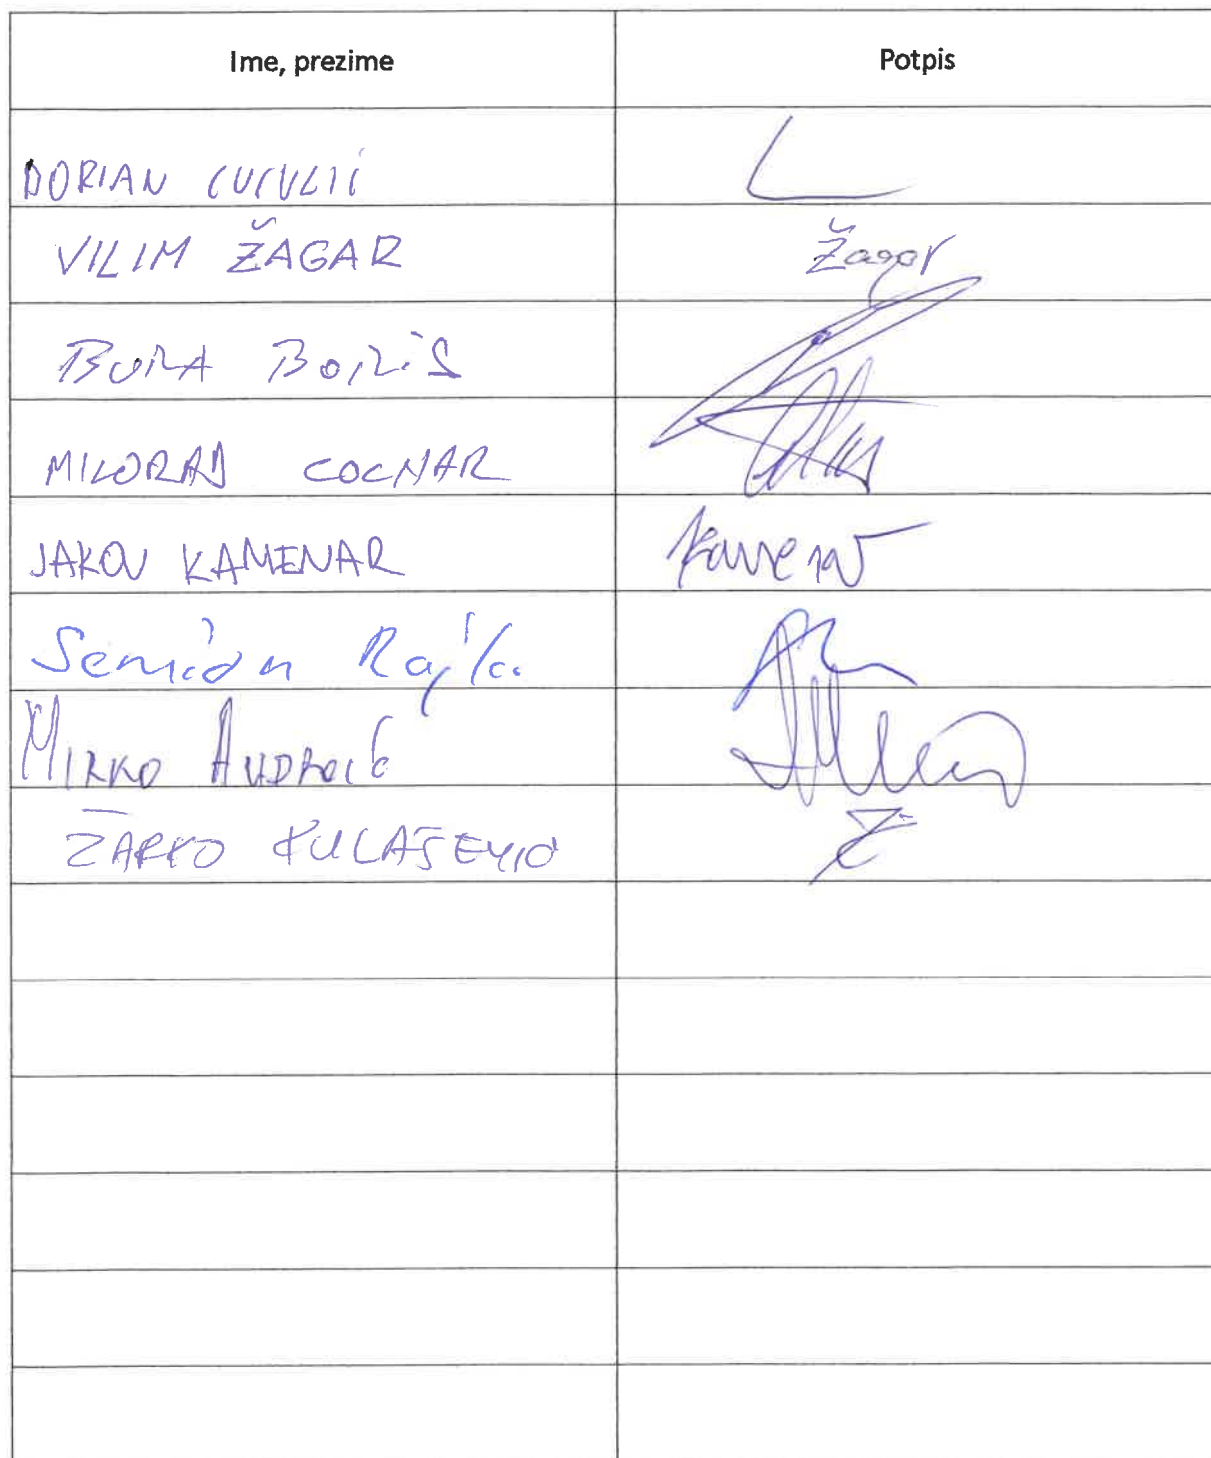 Ime, prezime Potpis
DORIAN CUCULIĆ
VILIM ŽAGAR Žagar
BURA Boris
MILORAD COCNAR
JAKOV KAMENAR Kamenar
Rajko
MIRKO ANDROIĆ
ŽARKO KULAŠEVIĆ Ž